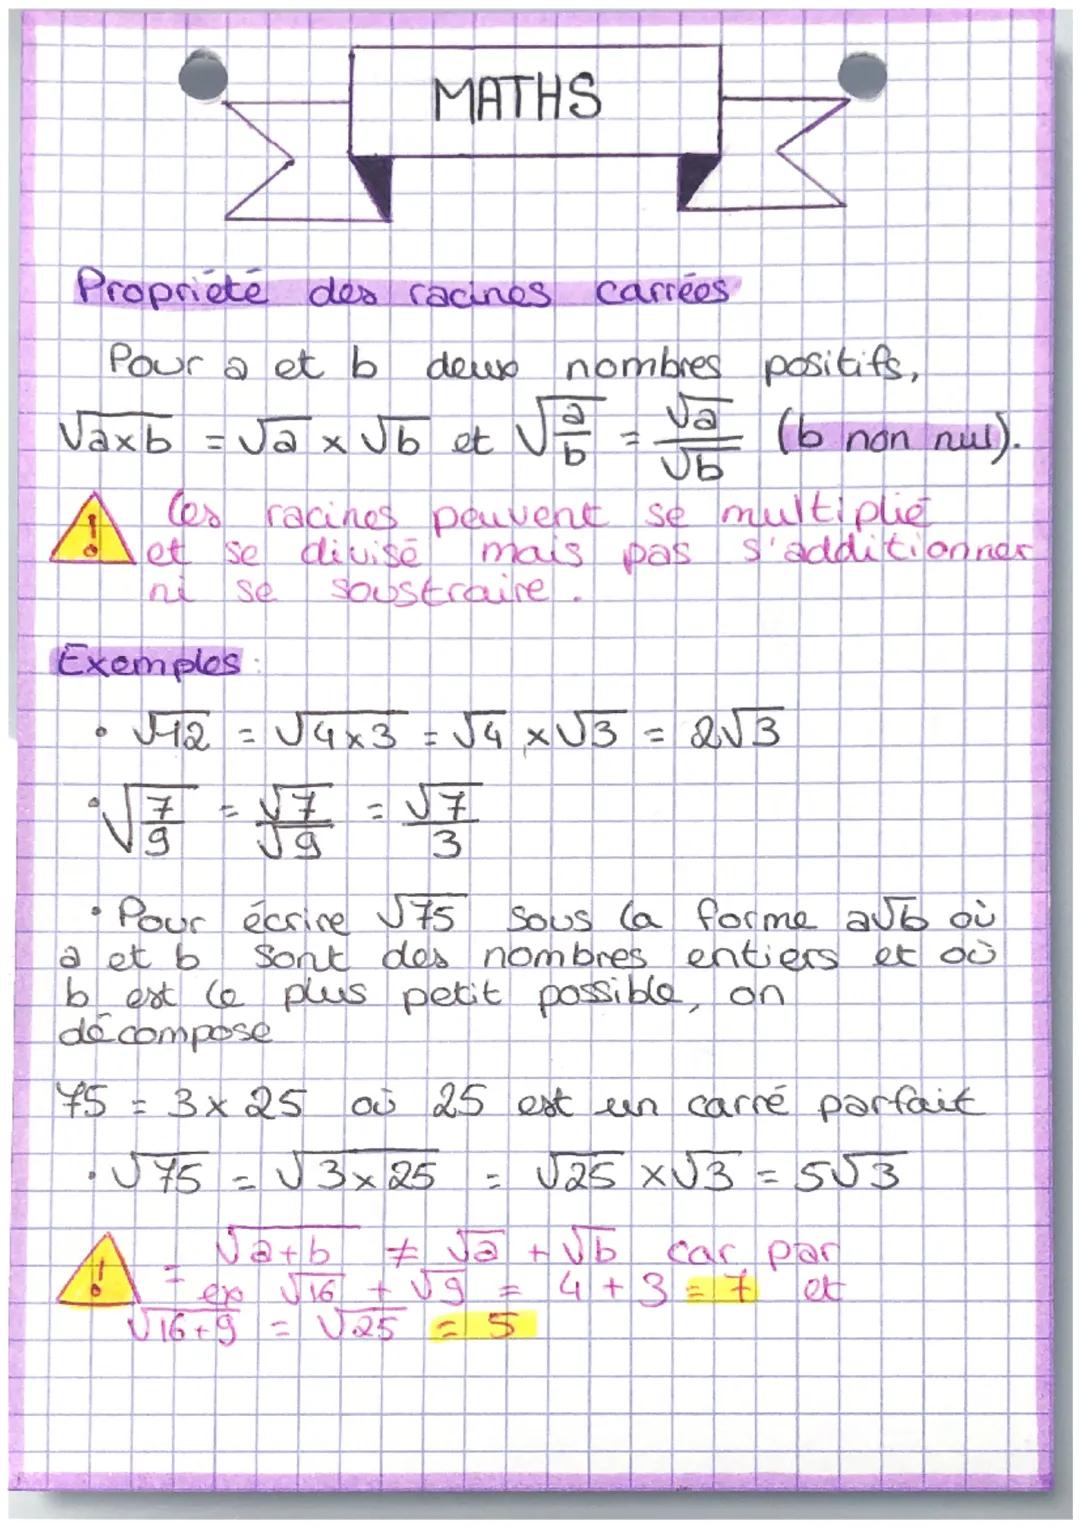 MATHS
Propriété des racines carrées
Pour a et b deux nombres positifs,
√a×b = √a × √b et √a/b = √a/√b (b non nul).
! les racines peuvent se multiplié
et se divisé mais pas s'additionner
ni se soustraire.
Exemples :
• √12 = √4×3 = √4 × √3 = 2√3
• √7/9 = √7/√9 = √7/3
• Pour écrire √75 sous la forme a√b où
a et b sont des nombres entiers et où
b est le plus petit possible, on
décompose
75 = 3 × 25 où 25 est un carré parfait
• √75 = √3×25 = √25 × √3 = 5√3
! = √a+b ≠ √a + √b car par
ex √16 + √9 = 4 + 3 = 7 et
√16+9 = √25 = 5